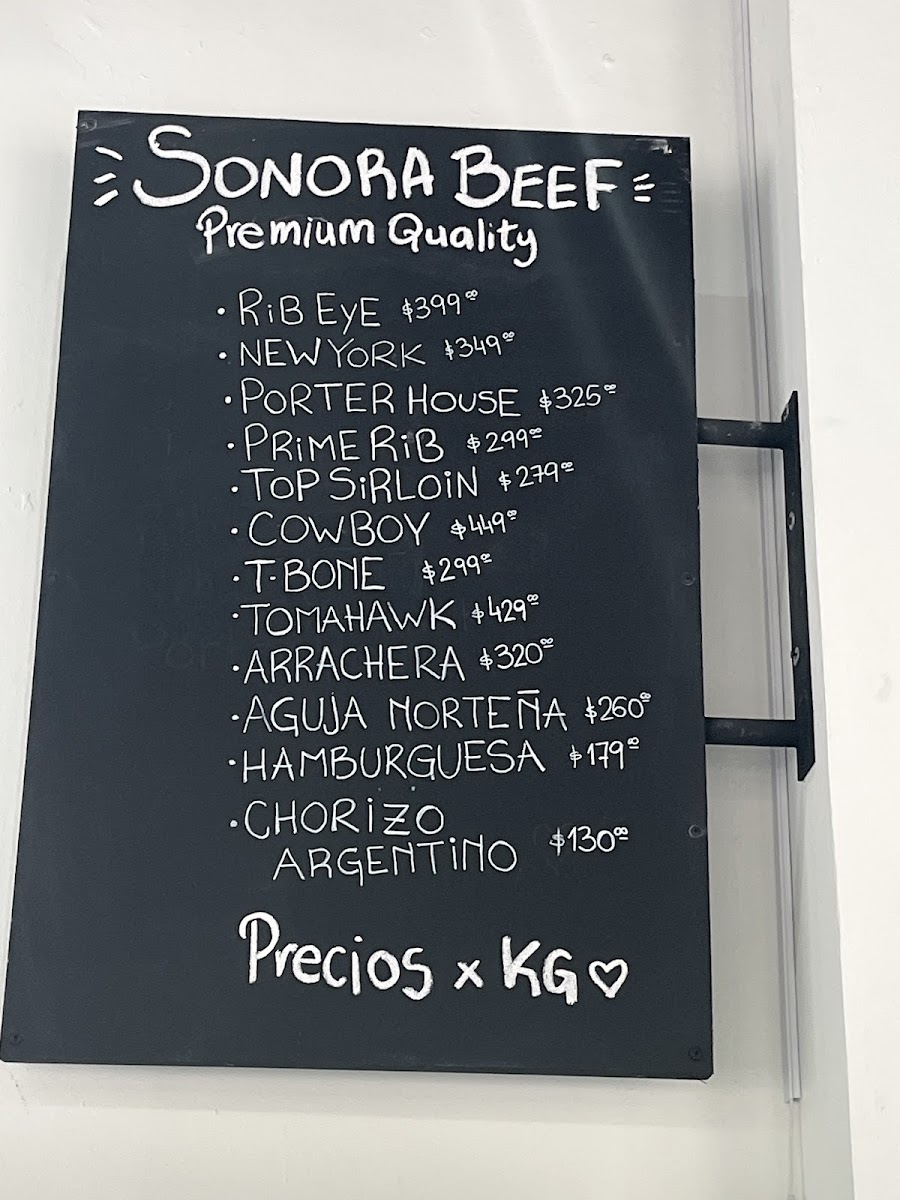 SONORA BEEF
Premium Quality
· RiB EyE $399⁰⁰
· NEW YORK $349⁰⁰
· PORTER HOUSE $325⁰⁰
· PRiME RiB $299⁰⁰
· TOP SiRLOiN $279⁰⁰
· COWBOY $449⁰⁰
· T-BONE $299⁰⁰
· TOMAHAWK $429⁰⁰
· ARRACHERA $320⁰⁰
· AGUJA NORTEÑA $260⁰⁰
· HAMBURGUESA $179⁰⁰
· CHORiZO
ARGENTiNO $130⁰⁰
Precios x KG ♡